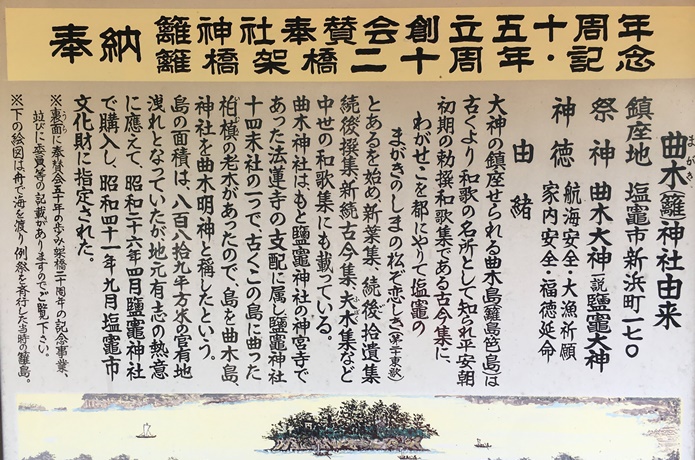 奉納 籬神社奉賛会創立五十周年
籬神橋架橋二十周年・記念
曲木(籬)神社由来
まがき
鎮座地 塩竈市新浜町一七〇
祭神 曲木大神(一説鹽竈大神
神徳 航海安全・大漁祈願
家内安全・福徳延命
由緒
大神の鎮座せられる曲木島(籬島笆島)は
古くより和歌の名所として知られ平安朝
初期の勅撰和歌集である古今集に、
わがせこを都にやりて塩竈の
まがきのしまの松ぞ恋しき(第二十東歌)
とあるを始め新葉集、続後拾遺集
続後撰集、新続古今集、夫木集など
中世の和歌集にも載っている。
曲木神社はもと鹽竈神社の神宮寺で
あった法蓮寺の支配に属し鹽竈神社
十四末社の一つで、古くこの島に曲った
柏槙の老木があったので、島を曲木島、
神社を曲木明神と称したという。
島の面積は、八百八拾九平方米の官有地
洩れとなっていたが地元有志の熱意
に応えて、昭和二十六年四月鹽竈神社
で購入し、昭和四十一年九月塩竈市
文化財に指定された。
※裏面に奉賛会五十年の歩み、架橋二十周年の記念事業、
並びに委員等の記載がありますのでご覧下さい。
※下の絵図は舟で海を渡り例祭を斉行した当時の籬島。